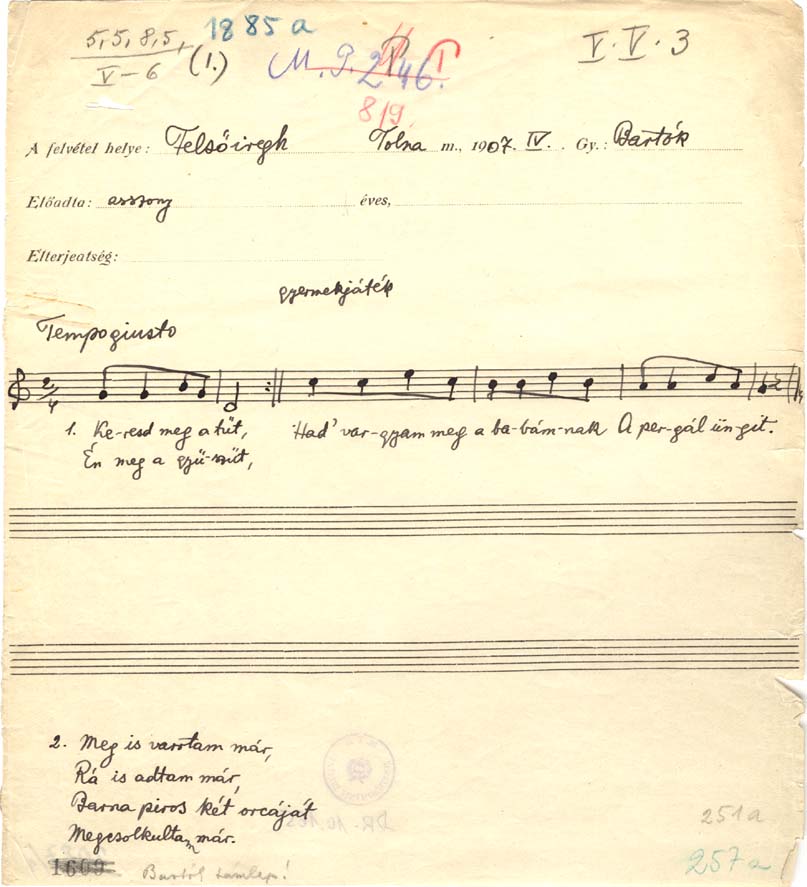 5, 5, 8, 5,
V–6
(1.)
1885a
M. P. 2 46.
8/9
V. V. 3
A felvétel helye: Felsőiregh Tolna m., 1907. IV. Gy.: Bartók
Előadta: asszony éves,
Elterjeatség:
gyermekjáték
Tempogiusto
2/4
1. Ke-resd meg a tűt, Had' var-gyam meg a ba-bám-nak A per-gál ün-git.
Én meg a gyü-szüt,
2. Meg is varrtam már,
Rá is adtam már,
Barna piros két orcáját
Megcsolkultam már.
251a
1609
257a